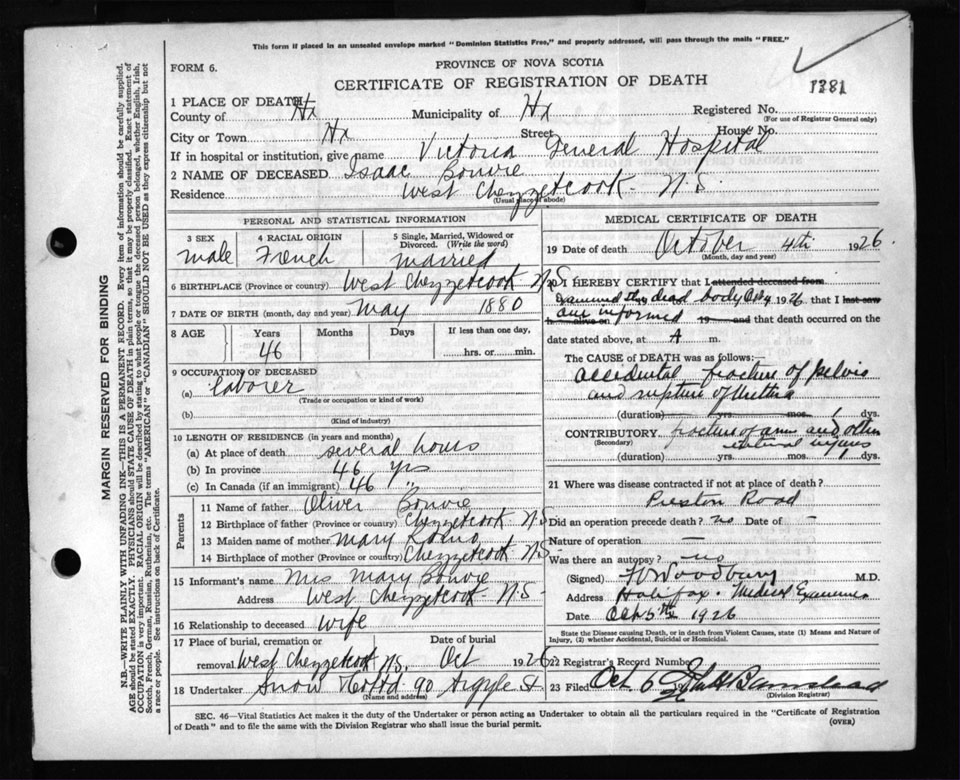 This form if placed in an unsealed envelope marked "Dominion Statistics Free," and properly addressed, will pass through the mails "FREE."
FORM 6.
PROVINCE OF NOVA SCOTIA
CERTIFICATE OF REGISTRATION OF DEATH
1381
1 PLACE OF DEATH
County of Hx Municipality of Hx Registered No.
(For use of Registrar General only)
City or Town Hx Street House No.
If in hospital or institution, give name Victoria General Hospital
2 NAME OF DECEASED Isaac Bonvie
Residence West Chezzetcook N.S.
(Usual place of abode)
PERSONAL AND STATISTICAL INFORMATION
3 SEX 4 RACIAL ORIGIN 5 Single, Married, Widowed or Divorced. (Write the word)
male French married
6 BIRTHPLACE (Province or country) West Chezzetcook N.S
7 DATE OF BIRTH (month, day and year) May 1880
8 AGE Years Months Days If less than one day,
46 hrs. or min.
9 OCCUPATION OF DECEASED
(a) laborer
(Trade or occupation or kind of work)
(b)
(Kind of industry)
10 LENGTH OF RESIDENCE (in years and months)
(a) At place of death several hours
(b) In province 46 yrs
(c) In Canada (if an immigrant) 46 "
Parents
11 Name of father Oliver Bonvie
12 Birthplace of father (Province or country) Chezzetcook N.S
13 Maiden name of mother Mary
14 Birthplace of mother (Province or country) Chezzetcook N.S-
15 Informant's name Mrs Mary Bonvie
Address West Chezzetcook N.S-
16 Relationship to deceased wife
17 Place of burial, cremation or Date of burial
removal West Chezzetcook N.S. Oct 1926
18 Undertaker Snow & Co Ltd 90 Argyle St.
(Name and address)
MEDICAL CERTIFICATE OF DEATH
19 Date of death October 4th 1926
(Month, day and year)
20 I HEREBY CERTIFY that I attended deceased from
Examined this dead body Oct 4 1926 that I last saw
am informed h alive on 19 and that death occurred on the
date stated above, at A m.
The CAUSE OF DEATH was as follows:—
Accidental fracture of pelvis
and rupture of urethra
(duration) yrs. mos. 1 dys.
CONTRIBUTORY. fracture of arm and other
(Secondary) internal injuries
(duration) yrs. mos. 1 dys.
21 Where was disease contracted if not at place of death?
Preston Road
Did an operation precede death? no Date of -
Nature of operation -
Was there an autopsy? no
(Signed) Woodbury M.D.
Address Halifax. Medical Examiner
Date Oct 5th 1926
State the Disease causing Death, or in death from Violent Causes, state (1) Means and Nature of
Injury, (2) whether Accidental, Suicidal or Homicidal.
22 Registrar's Record Number
23 Filed Oct 6
(Division Registrar)
SEC. 46—Vital Statistics Act makes it the duty of the Undertaker or person acting as Undertaker to obtain all the particulars required in the "Certificate of Registration
of Death" and to file the same with the Division Registrar who shall issue the burial permit.
(OVER)
MARGIN RESERVED FOR BINDING
N.B.—WRITE PLAINLY WITH UNFADING INK—THIS IS A PERMANENT RECORD. Every item of information should be carefully supplied.
AGE should be stated EXACTLY. PHYSICIANS should STATE CAUSE OF DEATH in plain terms, so that it may be properly classified. Exact statement of
OCCUPATION is very important. RACIAL ORIGIN will be described by stating to what people or tongue the deceased person belonged, whether English, Irish,
Scotch, French, German, Russian, Ruthenian, etc. The terms "AMERICAN" or "CANADIAN" SHOULD NOT BE USED as they express citizenship but not
a race or people. See instructions on back of Certificate.